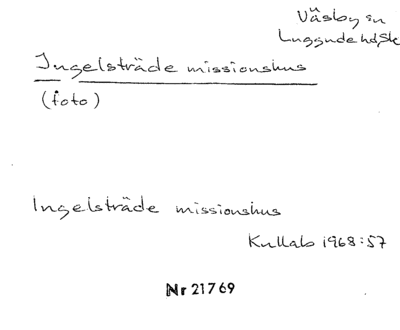 Väsby sn
Luggude hd, Sk
Ingelsträde missionshus
(foto)
Ingelsträde missionshus
Kullab 1968:57
Nr 21769